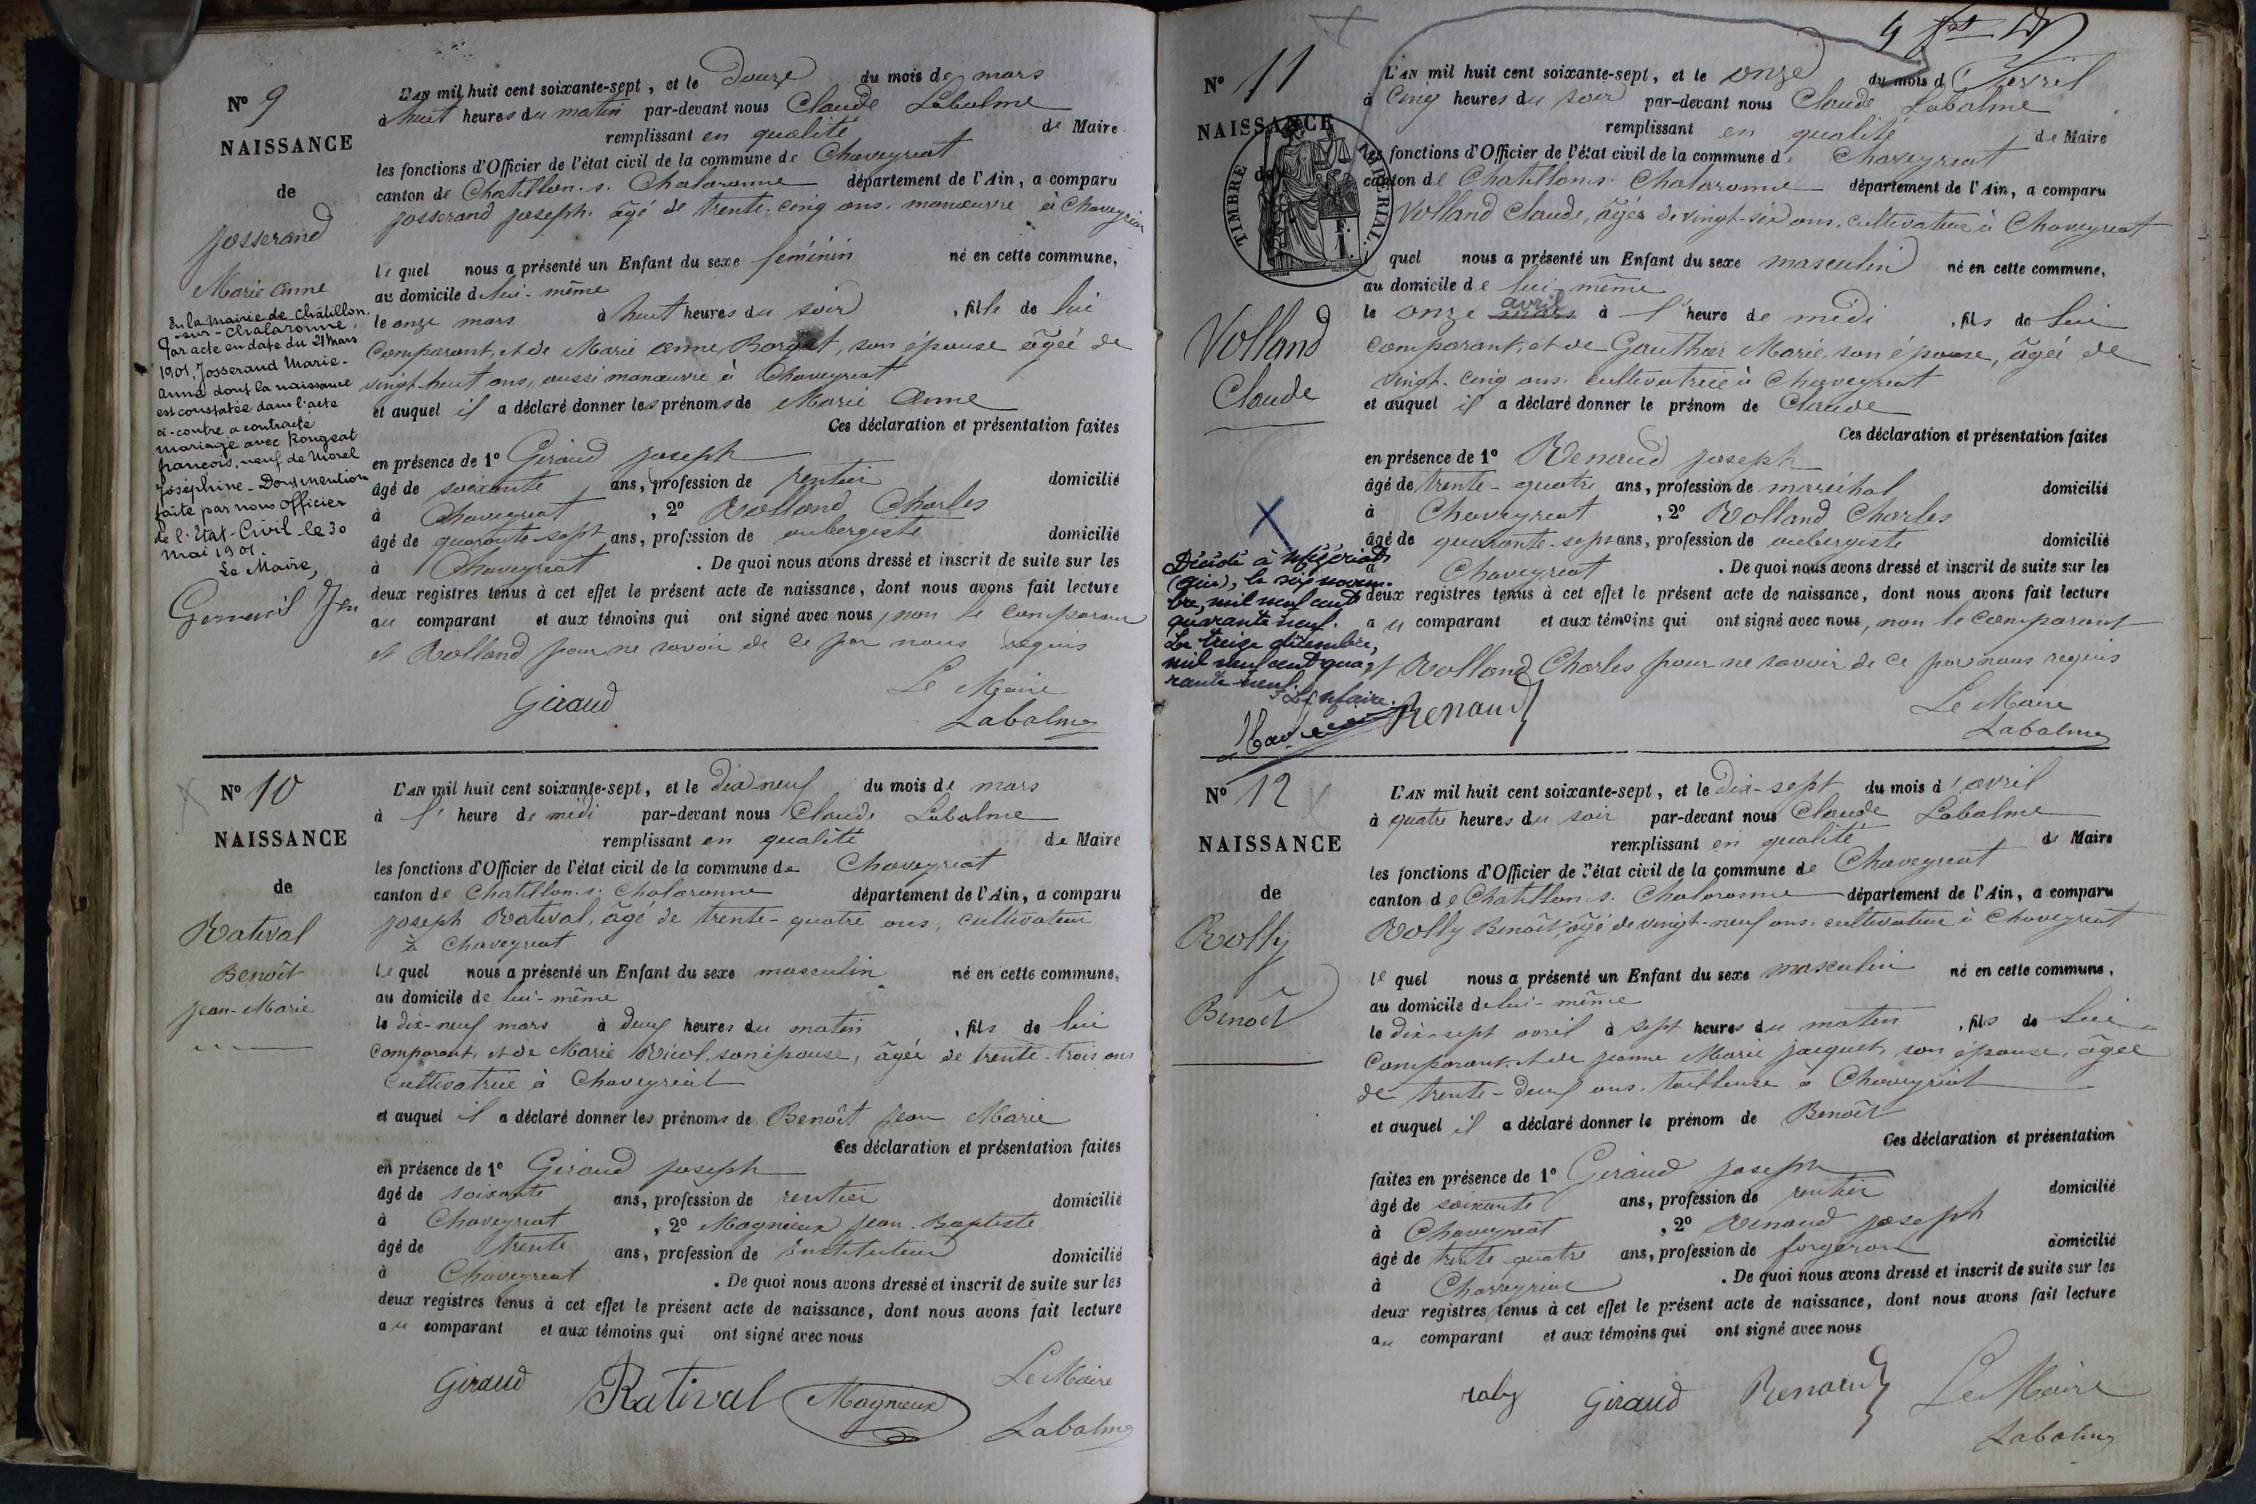 N° 9
NAISSANCE
de
Josserand
Marie Anne
En la Mairie de Châtillon-
sur-Chalaronne,
Par acte en date du 21 Mars
1901, Josserand Marie-
Anne dont la naissance
est constatée dans l'acte
ci-contre a contracté
mariage avec Rongeat
françois, veuf de Morel
Joséphine - Dont mention
faite par nous Officier
de l'Etat-Civil le 30
Mai 1901.
Le Maire,
L'AN mil huit cent soixante-sept, et le Douze du mois de mars
à huit heures du matin par-devant nous Claude Labalme
remplissant en qualité de Maire
les fonctions d'Officier de l'état civil de la commune de Chaveyriat
canton de Chatillon s. Chalaronne département de l'Ain, a comparu
Josserand Joseph âgé de trente-cinq ans, manœuvre à Chaveyriat
le quel nous a présenté un Enfant du sexe féminin né en cette commune,
au domicile de lui-même
le onze mars à huit heures du soir, fille de lui
Comparant, et de Marie Anne Borgat, son épouse âgée de
vingt-huit ans, aussi manœuvre à Chaveyriat
et auquel il a déclaré donner les prénoms de Marie Anne
Ces déclaration et présentation faites
en présence de 1° Giraud Joseph
âgé de soixante ans, profession de rentier domicilié
à Chaveyriat, 2° Rolland Charles
âgé de quarante-sept ans, profession de aubergiste domicilié
à Chaveyriat. De quoi nous avons dressé et inscrit de suite sur les
deux registres tenus à cet effet le présent acte de naissance, dont nous avons fait lecture
au comparant et aux témoins qui ont signé avec nous, non le comparant
et Rolland pour ne savoir de ce par nous requis
Giraud
Le Maire
Labalme
N° 10
NAISSANCE
de
Ratival
Benoît
Jean-Marie
L'AN mil huit cent soixante-sept, et le Dix neuf du mois de mars
à l'heure de midi par-devant nous Claude Labalme
remplissant en qualité de Maire
les fonctions d'Officier de l'état civil de la commune de Chaveyriat
canton de Chatillon s. Chalaronne département de l'Ain, a comparu
Joseph Ratival, âgé de trente-quatre ans, cultivateur
à Chaveyriat
le quel nous a présenté un Enfant du sexe masculin né en cette commune,
au domicile de lui-même
le dix-neuf mars à deux heures du matin, fils de lui
Comparant, et de Marie Nicol, son épouse, âgée de trente-trois ans
Cultivatrice à Chaveyriat
et auquel il a déclaré donner les prénoms de Benoît Jean Marie
Ces déclaration et présentation faites
en présence de 1° Giraud Joseph
âgé de soixante ans, profession de rentier domicilié
à Chaveyriat, 2° Magnieux Jean-Baptiste
âgé de trente ans, profession de Instituteur domicilié
à Chaveyriat. De quoi nous avons dressé et inscrit de suite sur les
deux registres tenus à cet effet le présent acte de naissance, dont nous avons fait lecture
au comparant et aux témoins qui ont signé avec nous
Giraud Ratival Magnieux
Le Maire
Labalme
N° 11
NAISSANCE
de
TIMBRE IMPÉRIAL.
Volland
Claude
Décédé à Mézériat
(Ain), le six novem-
bre, mil neuf cent
quarante neuf.
Le treize décembre,
mil neuf cent qua-
rante neuf.
Le Maire.
L'AN mil huit cent soixante-sept, et le onze du mois d'Avril
à Cinq heures du soir par-devant nous Claude Labalme
remplissant en qualité de Maire
les fonctions d'Officier de l'état civil de la commune de Chaveyriat
canton de Chatillon s. Chalaronne département de l'Ain, a comparu
Volland Claude, âgés de vingt-six ans, cultivateur à Chaveyriat
quel nous a présenté un Enfant du sexe masculin né en cette commune,
au domicile de lui-même
avril
le onze mars à l'heure de midi, fils de lui
Comparant, et de Gauthier Marie, son épouse, âgée de
vingt-cinq ans, cultivatrice à Chaveyriat
et auquel il a déclaré donner le prénom de Claude
Ces déclaration et présentation faites
en présence de 1° Renaud Joseph
âgé de trente-quatre ans, profession de maréchal domicilié
à Chaveyriat, 2° Rolland Charles
âgé de quarante-sept ans, profession de aubergiste domicilié
à Chaveyriat. De quoi nous avons dressé et inscrit de suite sur les
deux registres tenus à cet effet le présent acte de naissance, dont nous avons fait lecture
au comparant et aux témoins qui ont signé avec nous, non le comparant
et Rolland Charles pour ne savoir de ce par nous requis
Renaud
Le Maire
Labalme
N° 12
NAISSANCE
de
Rolly
Benoît
L'AN mil huit cent soixante-sept, et le Dix-sept du mois d'avril
à quatre heures du soir par-devant nous Claude Labalme
remplissant en qualité de Maire
les fonctions d'Officier de l'état civil de la commune de Chaveyriat
canton de Chatillon s. Chalaronne département de l'Ain, a comparu
Rolly Benoît, âgé de vingt-neuf ans, cultivateur à Chaveyriat
le quel nous a présenté un Enfant du sexe masculin né en cette commune,
au domicile de lui-même
le dix-sept avril à sept heures du matin, fils de Lui
Comparant, et de Jeanne Marie Jacquet, son épouse, âgée
de trente-deux ans, tailleuse à Chaveyriat
et auquel il a déclaré donner le prénom de Benoît
Ces déclaration et présentation
faites en présence de 1° Giraud Joseph
âgé de soixante ans, profession de rentier domicilié
à Chaveyriat, 2° Renaud Joseph
âgé de trente quatre ans, profession de forgeron domicilié
à Chaveyriat. De quoi nous avons dressé et inscrit de suite sur les
deux registres tenus à cet effet le présent acte de naissance, dont nous avons fait lecture
au comparant et aux témoins qui ont signé avec nous
roly Giraud Renaud
Le Maire
Labalme